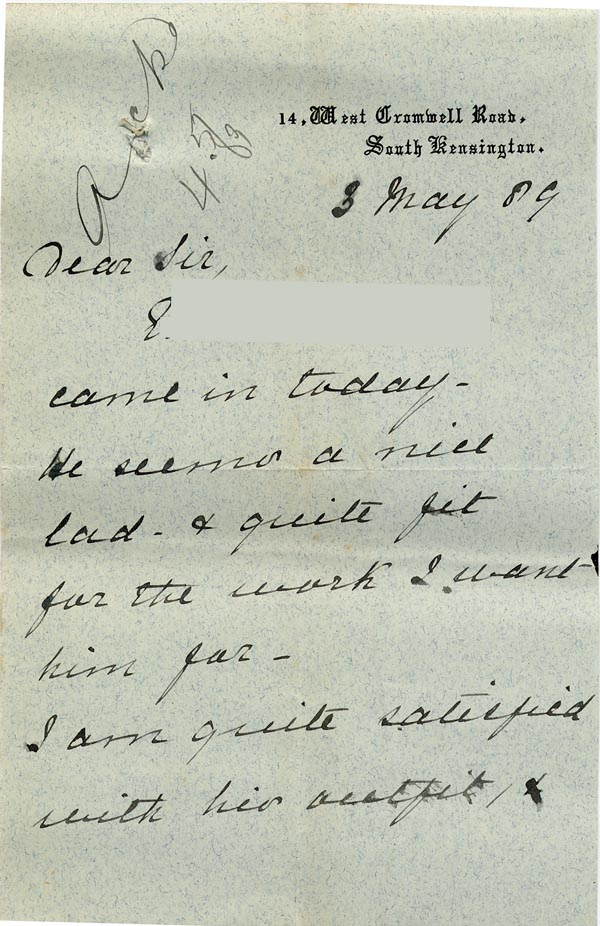 Ackd
4.5
89
14, West Cromwell Road,
South Kensington.
3 May 89
Dear Sir,
E.
came in today -
He seems a nice
lad - & quite fit
for the work I want
him for -
I am quite satisfied
with his outfit, &